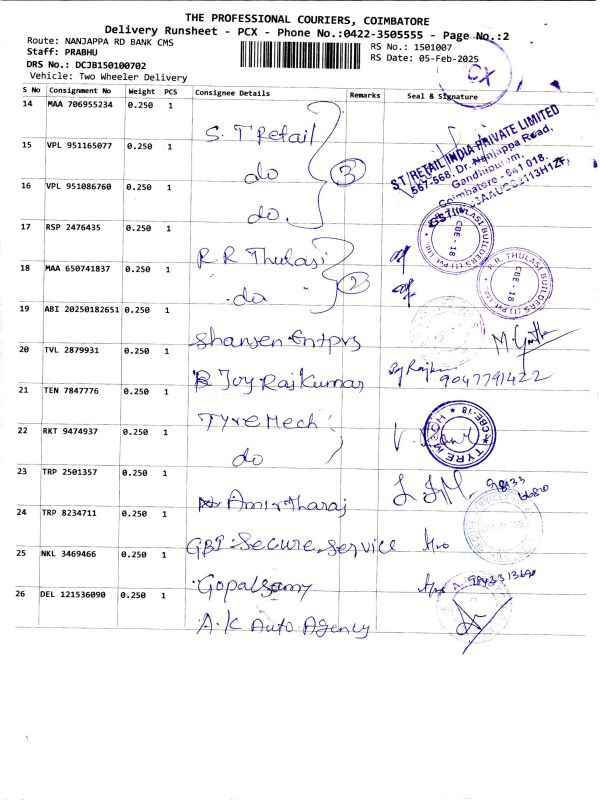 THE PROFESSIONAL COURIERS, COIMBATORE
Delivery Runsheet - PCX - Phone No.:0422-3505555 - Page No.:2
Route: NANJAPPA RD BANK CMS
RS No.: 1501007
Staff: PRABHU
RS Date: 05-Feb-2025
DRS No.: DCJB150100702
CX
Vehicle: Two Wheeler Delivery
S No Consignment No Weight PCS Consignee Details Remarks Seal & Signature
14 MAA 706955234 0.250 1 S. T Retail
ST RETAIL INDIA PRIVATE LIMITED
567-568, Dr. Nanjappa Road,
Gandhipuram,
Coimbatore - 641 018.
15 VPL 951165077 0.250 1 do 3
16 VPL 951086760 0.250 1 do.
17 RSP 2476435 0.250 1 R R Thulasi
R.R. THULASI BUILDERS (I) PVT. LTD. CBE - 18
18 MAA 650741837 0.250 1 do 2
R.R. THULASI BUILDERS (I) PVT. LTD. CBE - 18
19 ABI 20250182651 0.250 1 Shansen Entprs
20 TVL 2879931 0.250 1 Joy Raj Kumar
9047791422
21 TEN 7847776 0.250 1 Tyre Mech
TYRE MECH CBE-18
22 RKT 9474937 0.250 1 do
23 TRP 2501357 0.250 1 Amirtharaj
24 TRP 8234711 0.250 1 GBI Secure Service
25 NKL 3469466 0.250 1 Gopalsamy
26 DEL 121536090 0.250 1 A.K Auto Agency